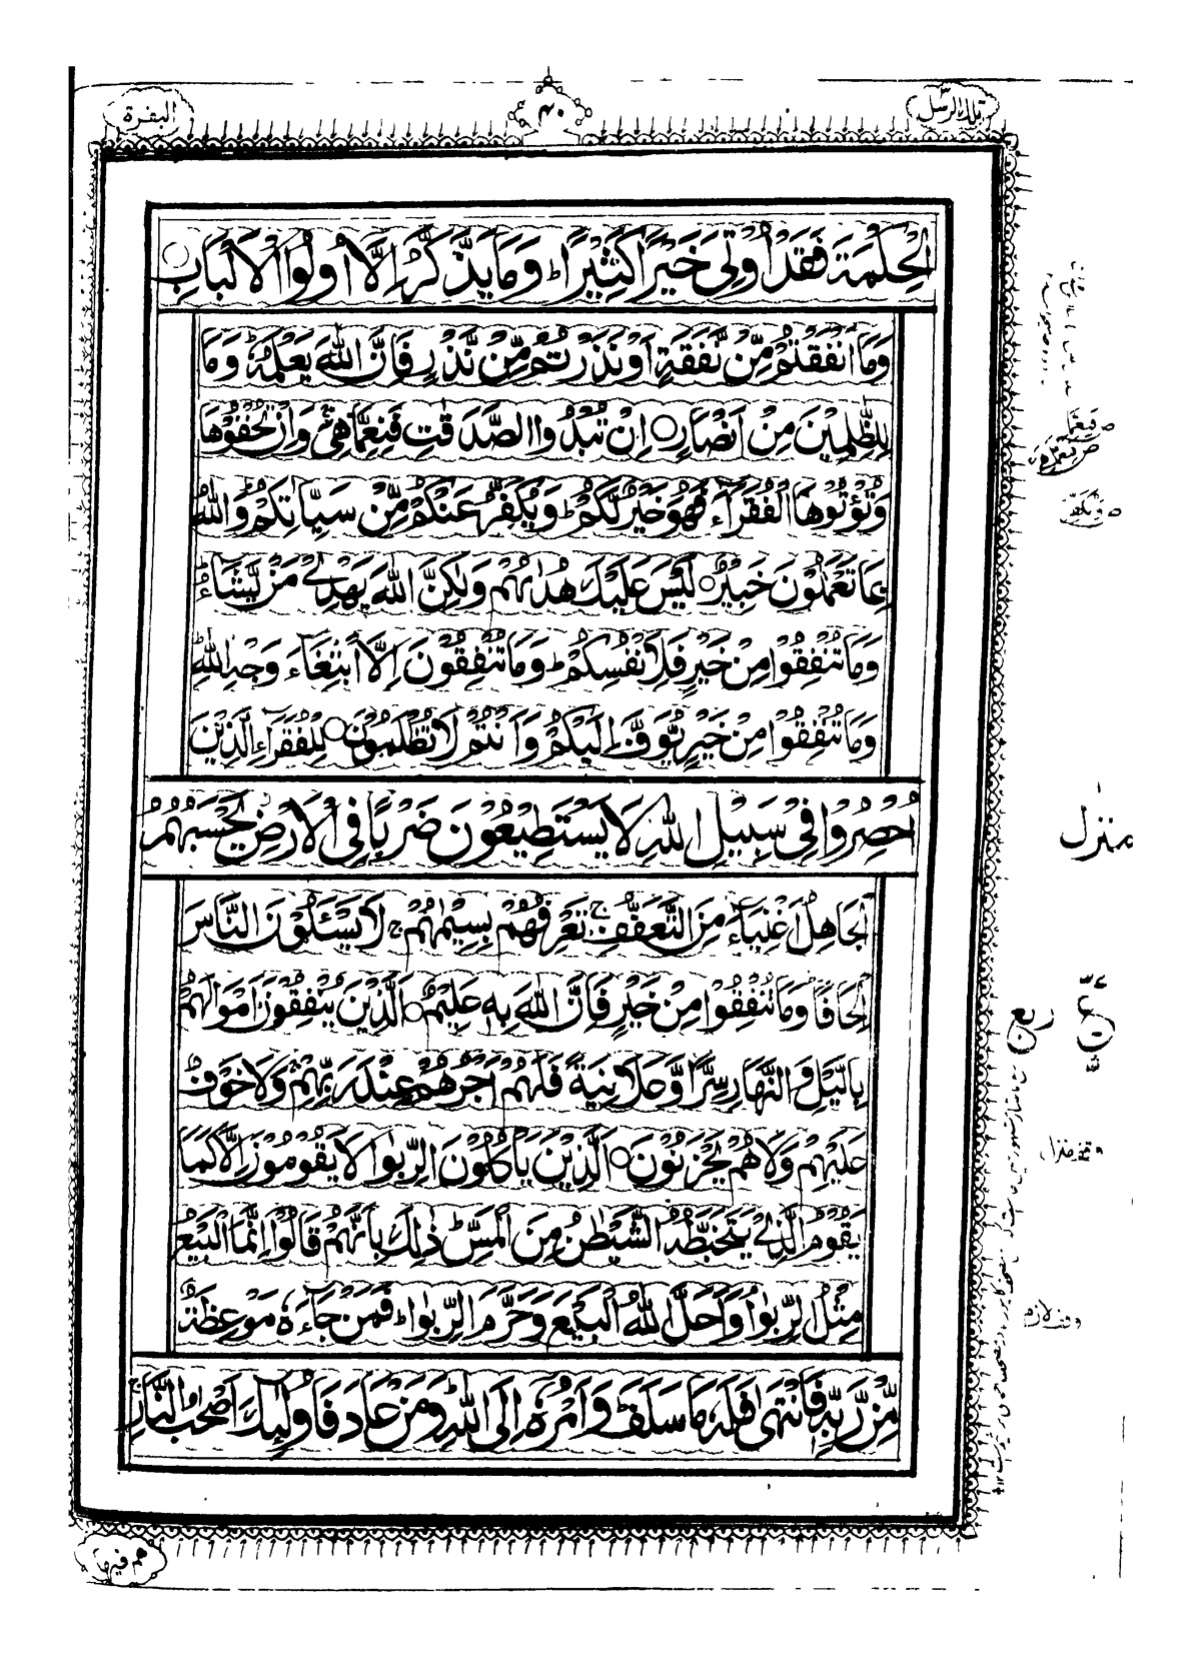 تلك الرسل
۴۰
البقرة
الْحِكْمَةَ فَقَدْ اُوْتِیَ خَیْرًا كَثِیْرًا ؕ وَمَا یَذَّكَّرُ اِلَّا اُولُوا الْاَلْبَابِ ○
وَمَا اَنْفَقْتُمْ مِّنْ نَّفَقَةٍ اَوْ نَذَرْتُمْ مِّنْ نَّذْرٍ فَاِنَّ اللّٰهَ یَعْلَمُهٗ ؕ وَمَا
لِلظّٰلِمِیْنَ مِنْ اَنْصَارٍ ○ اِنْ تُبْدُوا الصَّدَقٰتِ فَنِعِمَّا هِیَ ۚ وَاِنْ تُخْفُوْهَا
وَتُؤْتُوْهَا الْفُقَرَآءَ فَهُوَ خَیْرٌ لَّكُمْ ؕ وَیُكَفِّرُ عَنْكُمْ مِّنْ سَیِّاٰتِكُمْ ؕ وَاللّٰهُ
بِمَا تَعْمَلُوْنَ خَبِیْرٌ ○ لَیْسَ عَلَیْكَ هُدٰىهُمْ وَلٰكِنَّ اللّٰهَ یَهْدِیْ مَنْ یَّشَآءُ ؕ
وَمَا تُنْفِقُوْا مِنْ خَیْرٍ فَلِاَنْفُسِكُمْ ؕ وَمَا تُنْفِقُوْنَ اِلَّا ابْتِغَآءَ وَجْهِ اللّٰهِ ؕ
وَمَا تُنْفِقُوْا مِنْ خَیْرٍ یُّوَفَّ اِلَیْكُمْ وَاَنْتُمْ لَا تُظْلَمُوْنَ ○ لِلْفُقَرَآءِ الَّذِیْنَ
اُحْصِرُوْا فِیْ سَبِیْلِ اللّٰهِ لَا یَسْتَطِیْعُوْنَ ضَرْبًا فِی الْاَرْضِ یَحْسَبُهُمُ
الْجَاهِلُ اَغْنِیَآءَ مِنَ التَّعَفُّفِ ۚ تَعْرِفُهُمْ بِسِیْمٰهُمْ ۚ لَا یَسْـَٔلُوْنَ النَّاسَ
اِلْحَافًا ؕ وَمَا تُنْفِقُوْا مِنْ خَیْرٍ فَاِنَّ اللّٰهَ بِهٖ عَلِیْمٌ ○ اَلَّذِیْنَ یُنْفِقُوْنَ اَمْوَالَهُمْ
بِالَّیْلِ وَالنَّهَارِ سِرًّا وَّعَلَانِیَةً فَلَهُمْ اَجْرُهُمْ عِنْدَ رَبِّهِمْ ۚ وَلَا خَوْفٌ
عَلَیْهِمْ وَلَا هُمْ یَحْزَنُوْنَ ○ اَلَّذِیْنَ یَاْكُلُوْنَ الرِّبٰوا لَا یَقُوْمُوْنَ اِلَّا كَمَا
یَقُوْمُ الَّذِیْ یَتَخَبَّطُهُ الشَّیْطٰنُ مِنَ الْمَسِّ ؕ ذٰلِكَ بِاَنَّهُمْ قَالُوْۤا اِنَّمَا الْبَیْعُ
مِثْلُ الرِّبٰوا ۘ وَاَحَلَّ اللّٰهُ الْبَیْعَ وَحَرَّمَ الرِّبٰوا ؕ فَمَنْ جَآءَهٗ مَوْعِظَةٌ
مِّنْ رَّبِّهٖ فَانْتَهٰی فَلَهٗ مَا سَلَفَ ؕ وَاَمْرُهٗۤ اِلَی اللّٰهِ ؕ وَمَنْ عَادَ فَاُولٰٓئِكَ اَصْحٰبُ النَّارِ ۚ
هم فیها
فنعما
منزل
ربع
وقف منزل
وقف لازم